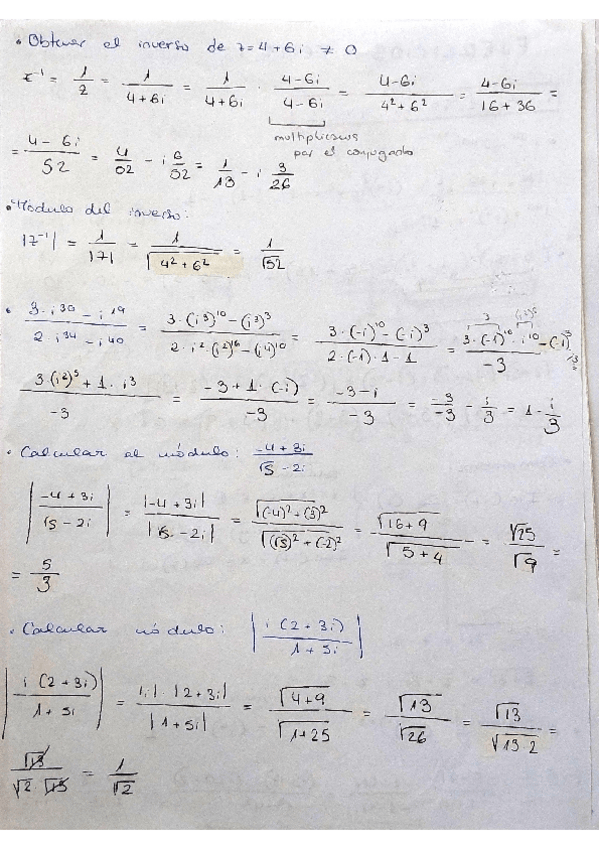 • Obtener el inverso de z = 4 + 6i ≠ 0
z⁻¹ = 1/2 = 1/(4+6i) = 1/(4+6i) · (4-6i)/(4-6i) = (4-6i)/(4²+6²) = (4-6i)/(16+36) =
multiplicamos
por el conjugado
= (4-6i)/52 = 4/52 - i 6/52 = 1/13 - i 3/26
• Módulo del inverso:
|z⁻¹| = 1/|z| = 1/√(4²+6²) = 1/√52
• (3·i³⁰ - i¹⁹)/(2·i³⁴ - i⁴⁰) = (3·(i³)¹⁰ - (i³)³)/(2·i²·(i²)¹⁶ - (i⁴)¹⁰) = (3·(-i)¹⁰ - (-i)³)/(2·(-1)·1 - 1) = (3·(-1)¹⁰·i¹⁰ - (-1)³ i³)/-3
3 (i²)⁵
(3·(i²)⁵ + 1·i³)/-3 = (-3 + 1·(-i))/-3 = (-3-i)/-3 = -3/-3 - i/3 = 1 - i/3
• Calcular el módulo: (-4+3i)/(√5-2i)
|(-4+3i)/(√5-2i)| = |-4+3i|/|√5-2i| = √((-4)²+(3)²)/√((√5)²+(-2)²) = √(16+9)/√(5+4) = √25/√9 =
= 5/3
• Calcular módulo: |i(2+3i)/(1+5i)|
|i(2+3i)/(1+5i)| = |i|·|2+3i|/|1+5i| = √(4+9)/√(1+25) = √13/√26 = √13/√(13·2) =
√13/(√2·√13) = 1/√2